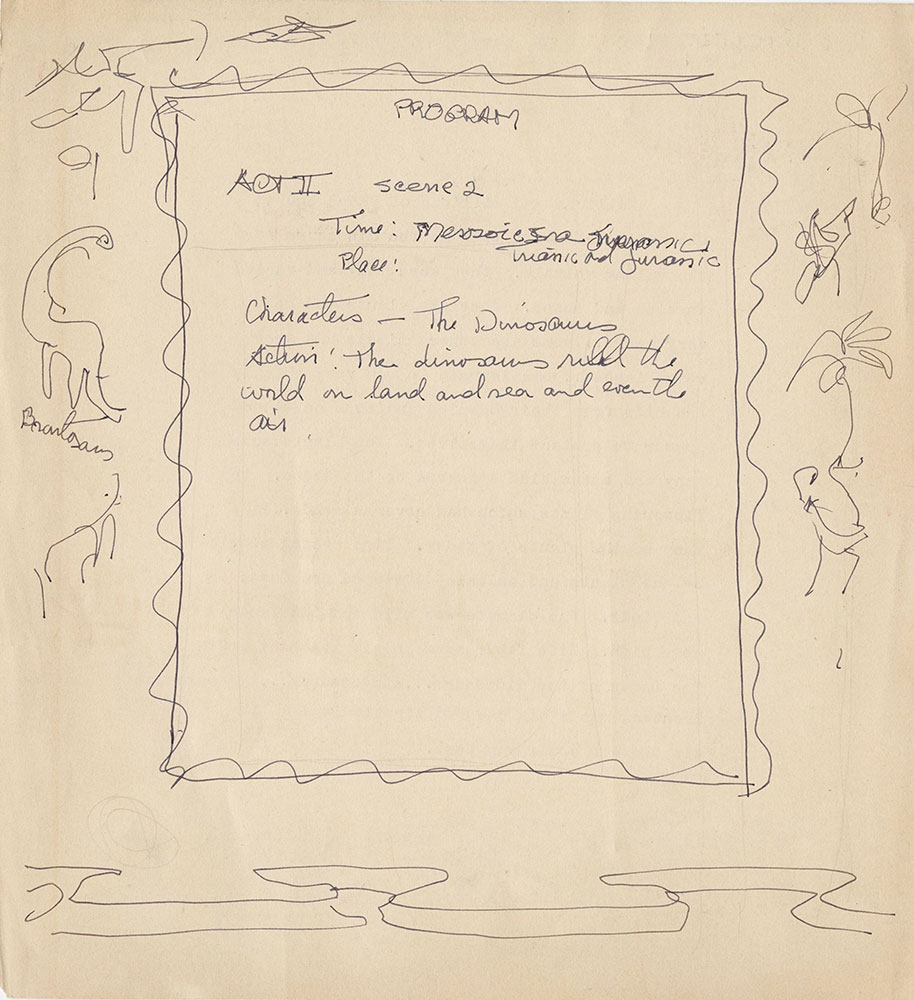 PROGRAM
ACT II scene 2
Time: Mesozoic Era
Trianic and Jurassic
Place:
Characters — The Dinosaurs
Action: The dinosaurs ruled the
world on land and sea and even the
air
Brontosaurs